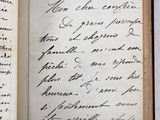 Mon cher confrère
De graves préoccupa-
tions et chagrins de
famille m'ont em-
pêché de vous répondre
plus tôt. Je suis bien
heureux d'avoir pu
si facilement vous